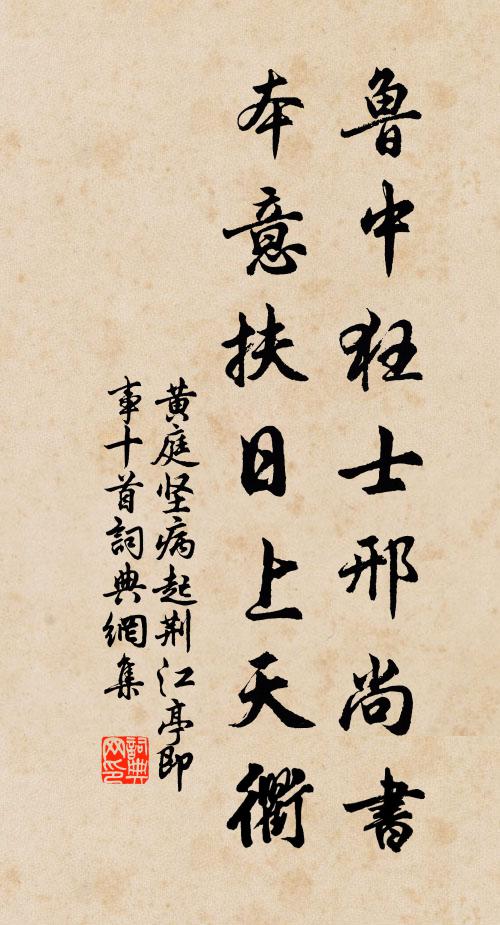 魯中狂士邢尚書
本意扶日上天衢
黄庭坚病起荆江亭即
事十首詞典網集
詞典网印